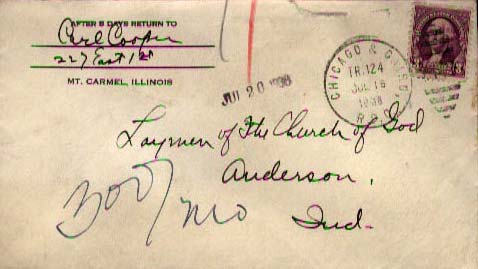 AFTER 5 DAYS RETURN TO
Carl Cooper
227 East 1st
MT. CARMEL, ILLINOIS
JUL 20 1938
CHICAGO &
TR.124
JUL 16
1938
R.P.O.
3 3
Laymen of The Church of God
Anderson,
Ind.